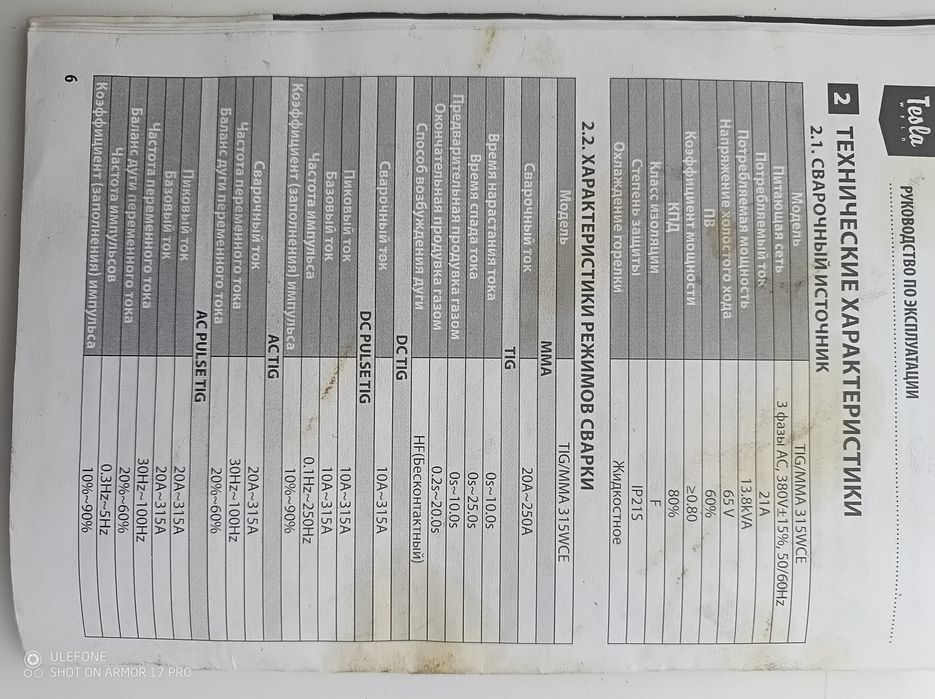 Tesla
WELD
РУКОВОДСТВО ПО ЭКСПЛУАТАЦИИ
2 ТЕХНИЧЕСКИЕ ХАРАКТЕРИСТИКИ
2.1. СВАРОЧНЫЙ ИСТОЧНИК
Модель TIG/MMA 315WCE
Питающая сеть 3 фазы AC, 380V±15%, 50/60Hz
Потребляемый ток 21A
Потребляемая мощность 13.8kVA
Напряжение холостого хода 65 V
ПВ 60%
Коэффициент мощности ≥0,80
КПД 80%
Класс изоляции F
Степень защиты IP21S
Охлаждение горелки Жидкостное
2.2. ХАРАКТЕРИСТИКИ РЕЖИМОВ СВАРКИ
Модель TIG/MMA 315WCE
MMA
Сварочный ток 20A~250A
TIG
Время нарастания тока 0s~10.0s
Время спада тока 0s~25.0s
Предварительная продувка газом 0s~10.0s
Окончательная продувка газом 0.2s~20.0s
Способ возбуждения дуги HF(Бесконтактный)
DC TIG
Сварочный ток 10A~315A
DC PULSE TIG
Пиковый ток 10A~315A
Базовый ток 10A~315A
Частота импульса 0.1Hz~250Hz
Коэффициент (заполнения) импульса 10%~90%
AC TIG
Сварочный ток 20A~315A
Частота переменного тока 30Hz~100Hz
Баланс дуги переменного тока 20%~60%
AC PULSE TIG
Пиковый ток 20A~315A
Базовый ток 20A~315A
Частота переменного тока 30Hz~100Hz
Баланс дуги переменного тока 20%~60%
Частота импульсов 0.3Hz~5Hz
Коэффициент (заполнения) импульса 10%~90%
6
ULEFONE
SHOT ON ARMOR 17 PRO